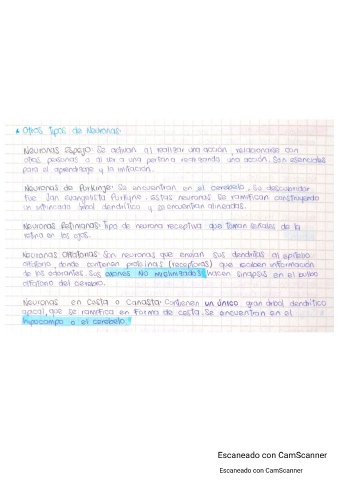 ★ Otros Tipos de Neuronas:
Neuronas Espejo: Se activan al realizar una acción, relacionarse con
otras personas o al ver a una persona realizando una acción. Son esenciales
para el aprendizaje y la imitación.
Neuronas de Purkinje: Se encuentran en el cerebelo, su descubridor
fue Jan Evangelista Purkyne, estas neuronas se ramifican construyendo
un intrincado árbol dendrítico y se encuentran alineadas.
Neuronas Retinianas: Tipo de neurona receptiva que toman señales de la
retina en los ojos.
Neuronas Olfatorias: Son neuronas que envían sus dendritas al epitelio
olfatorio, donde contienen proteínas (receptores) que reciben información
de los odorantes. Sus axones NO mielinizados hacen sinapsis en el bulbo
olfatorio del cerebro.
Neuronas en Cesta o Canasta: Contienen un único gran árbol dendrítico
apical, que se ramifica en forma de cesta. Se encuentran en el
hipocampo o el cerebelo.
Escaneado con CamScanner
Escaneado con CamScanner